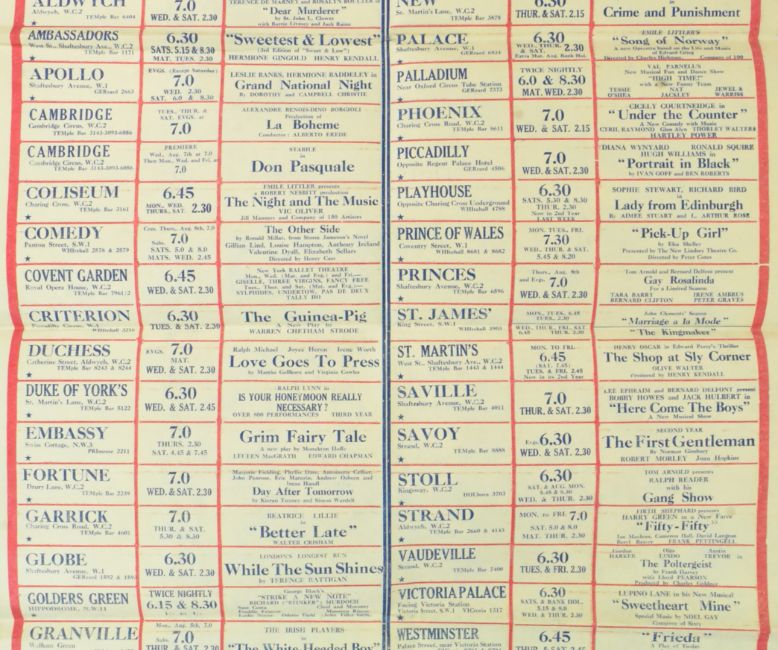 ALDWYCH
Aldwych, W.C.2
TEMple Bar 6404
7.0
WED. & SAT. 2.30
"Dear Murderer"
by St. John L. Clowes
AMBASSADORS
West St., Shaftesbury Ave., W.C.2
TEMple Bar 1171
6.30
SATS. 5.15 & 8.30
MAT. TUES. 2.30
"Sweetest & Lowest"
(3rd Edition of "Sweet & Low")
HERMIONE GINGOLD HENRY KENDALL
APOLLO
Shaftesbury Avenue, W.1
GERrard 2663
EVGS. (Except Saturday)
7.0
WED. 2.30
SAT. 6.0 & 8.30
LESLIE BANKS, HERMIONE BADDELEY in
Grand National Night
By DOROTHY and CAMPBELL CHRISTIE
CAMBRIDGE
Cambridge Circus, W.C.2
TUES., THUR. &
SAT. EVGS. at
7.0
Production of
La Boheme
Conductor : ALBERTO EREDE
CAMBRIDGE
Cambridge Circus, W.C.2
PREMIERE
Wed., Aug. 7th at 7.0
Then Mon., Wed. and Fri. at
7.0
STABILE in
Don Pasquale
COLISEUM
Charing Cross, W.C.2
TEMple Bar 3161
6.45
MON., WED.
THURS., SAT. 2.30
EMILE LITTLER presents
a ROBERT NESBITT production
The Night and The Music
VIC OLIVER
Jill Manners and Company of 180 Artistes
COMEDY
Panton Street, S.W.1
WHItehall 2578 & 2879
Com. Thurs., Aug. 8th, 7.0
Subs. 7.0
SATS. 5.0 & 8.0
MATS. WED. 2.45
The Other Side
by Ronald Millar, from Storm Jameson's Novel
Gillian Lind, Louise Hampton, Anthony Ireland
Valentine Dyall, Elizabeth Sellars
Directed by Henry Cass
COVENT GARDEN
Royal Opera House, W.C.2
TEMple Bar 7961/2
6.45
WED. & SAT. 2.30
New York BALLET THEATRE
GISELLE, THREE VIRGINS, FANCY FREE
SYLPHIDES, UNDERTOW, PAS DE DEUX
TALLY HO
CRITERION
Piccadilly Circus, W.1
WHItehall 3216
6.30
TUES. & SAT. 2.30
The Guinea-Pig
New Play by
WARREN CHETHAM STRODE
DUCHESS
Catherine Street, Aldwych, W.C.2
TEMple Bar 8243 & 8244
EVGS. 7.0
MAT.
WED. & SAT. 2.30
Ralph Michael Joyce Heron Irene Worth
Love Goes To Press
by Martha Gellhorn and Virginia Cowles
DUKE OF YORK'S
St. Martin's Lane, W.C.2
TEMple Bar 5122
6.30
WED. & SAT. 2.45
RALPH LYNN in
IS YOUR HONEYMOON REALLY
NECESSARY?
OVER 800 PERFORMANCES THIRD YEAR
EMBASSY
Swiss Cottage, N.W.3
PRImrose 2211
7.0
THURS. 2.30
SAT. 4.45 & 7.45
Grim Fairy Tale
A new play by Monckton Hoffe
EITHNE MacGRATH EDWARD CHAPMAN
FORTUNE
Drury Lane, W.C.2
TEMple Bar 2238
7.0
WED. & SAT. 2.30
Marjorie Fielding, Phyllis Dare, Antoinette Cellier,
Day After Tomorrow
by Kieran Tunney and Simon Wardell
GARRICK
Charing Cross Road, W.C.2
TEMple Bar 4601
7.0
THUR. & SAT.
5.30 & 8.30
BEATRICE LILLIE
in
"Better Late"
WALTER CRISHAM
GLOBE
Shaftesbury Avenue, W.1
GERrard 1592 & 1593
6.30
WED. & SAT. 2.30
LONDON'S LONGEST RUN
While The Sun Shines
by TERENCE RATTIGAN
GOLDERS GREEN
HIPPODROME, N.W.11
TWICE NIGHTLY
6.15 & 8.30
George Black's
"STRIKE A NEW NOTE"
RICHARD ("STINKER") MURDOCH
GRANVILLE
Walham Green
Mon., Aug. 5th, 7.0
Subs. 7.0
THUR. & SAT. 2.30
THE IRISH PLAYERS
in
"The White Headed Boy"
NEW
St. Martin's Lane, W.C.2
TEMple Bar 3878
6.30
THUR. & SAT. 2.15
in
Crime and Punishment
PALACE
Shaftesbury Avenue, W.1
GERrard 6834
6.30
WED., THUR. &
SAT. 2.30
Extra Mat. Aug. Bank Mon.
EMILE LITTLER'S
"Song of Norway"
A new Operetta based on the Life and Music
of Edvard Grieg
Directed by Charles Hickman. Company of 100
PALLADIUM
Near Oxford Circus Tube Station
GERrard 7373
TWICE NIGHTLY
6.0 & 8.30
MAT. WED. 2.30
VAL PARNELL'S
New Musical Fun and Dance Show
"HIGH TIME!"
with a New Funny Team
TESSIE O'SHEA
NAT JACKLEY
JEWEL & WARRISS
PHOENIX
Charing Cross Road, W.C.2
TEMple Bar 8611
7.0
WED. & SAT. 2.15
CICELY COURTNEIDGE in
"Under the Counter"
A New Comedy with Music
CYRIL RAYMOND Glen Alyn THORLEY WALTERS
HARTLEY POWER
PICCADILLY
Opposite Regent Palace Hotel
GERrard 4506
7.0
WED. & SAT. 2.30
DIANA WYNYARD RONALD SQUIRE
HUGH WILLIAMS in
"Portrait in Black"
by IVAN GOFF and BEN ROBERTS
PLAYHOUSE
Opposite Charing Cross Underground
WHItehall 4788
6.30
SATS. 5.30 & 8.30
THUR. 2.30
Now in 2nd Year
LAST WEEK
SOPHIE STEWART, RICHARD BIRD
in
Lady from Edinburgh
By AIMEE STUART and L. ARTHUR ROSE
PRINCE OF WALES
Coventry Street, W.1
WHItehall 8681 & 8682
MON., TUES., FRI.
7.30
WED., THUR. & SAT.
5.45 & 8.20
"Pick-Up Girl"
By Elsa Shelley
Presented by The New Lindsey Theatre Co.
Directed by Peter Cotes
PRINCES
Shaftesbury Avenue, W.C.2
TEMple Bar 6596
Thurs., Aug. 8th
and Evgs. 7.0
WED. & SAT. 2.30
Tom Arnold and Bernard Delfont present
Gay Rosalinda
For a Limited Season
TARA BARRY IRENE AMBRUS
BERNARD CLIFTON PETER GRAVES
ST. JAMES'
King Street, S.W.1
WHItehall 3903
MON., TUES. 6.45
TUES. 2.30
WED., THUR., FRI., SAT.
6.45 THUR., SAT. 2.30
John Clements' Season
"Marriage a la Mode"
"The Kingmaker"
ST. MARTIN'S
West St., Shaftesbury Ave., W.C.2
TEMple Bar 1443 & 1444
MON. TO FRI.
6.45
(SAT. 7.45)
TUES. & FRI. 2.45
Now in its 2nd Year
HENRY OSCAR in Edward Percy's Thriller
The Shop at Sly Corner
OLIVE WALTER
Produced by HENRY KENDALL
SAVILLE
Shaftesbury Avenue, W.C.2
TEMple Bar 4011
7.0
THUR. & SAT. 2.30
LEE EPHRAIM and BERNARD DELFONT present
BOBBY HOWES and JACK HULBERT in
"Here Come The Boys"
A New Musical Show
SAVOY
Strand, W.C.2
TEMple Bar 8888
Evgs. 6.30
WED. & SAT. 2.30
SECOND YEAR
The First Gentleman
By Norman Ginsbury
ROBERT MORLEY Joan Hopkins
STOLL
Kingsway, W.C.2
HOLborn 3703
6.30
SAT. & AUG. MON.
5.45 & 8.30
WED. & THUR. 2.30
TOM ARNOLD presents
RALPH READER
with his
Gang Show
STRAND
Aldwych, W.C.2
TEMple Bar 2660 & 4143
MON. to FRI. 7.0
SAT. 5.0 & 8.0
MAT. THUR. 2.30
FIRTH SHEPHARD presents
HARRY GREEN in a New Farce
"Fifty-Fifty"
FRANK PETTINGELL
VAUDEVILLE
Strand, W.C.2
TEMple Bar 7400
6.30
TUES. & FRI. 2.30
Gordon HARKER
Olga LINDO
Austin TREVOR in
The Poltergeist
by Frank Harvey
with Lloyd PEARSON
VICTORIA PALACE
Facing Victoria Station
Victoria Street, S.W.1 VICtoria 1317
6.30
SATS. & BANK HOL.
5.15 & 8.0
WED. & THUR. 2.30
LUPINO LANE in his New Musical
"Sweetheart Mine"
Special Music by NOEL GAY
Company of Ninety
WESTMINSTER
Palace Street, near Victoria Station
6.45
THUR. & SAT. 2.30
"Frieda"